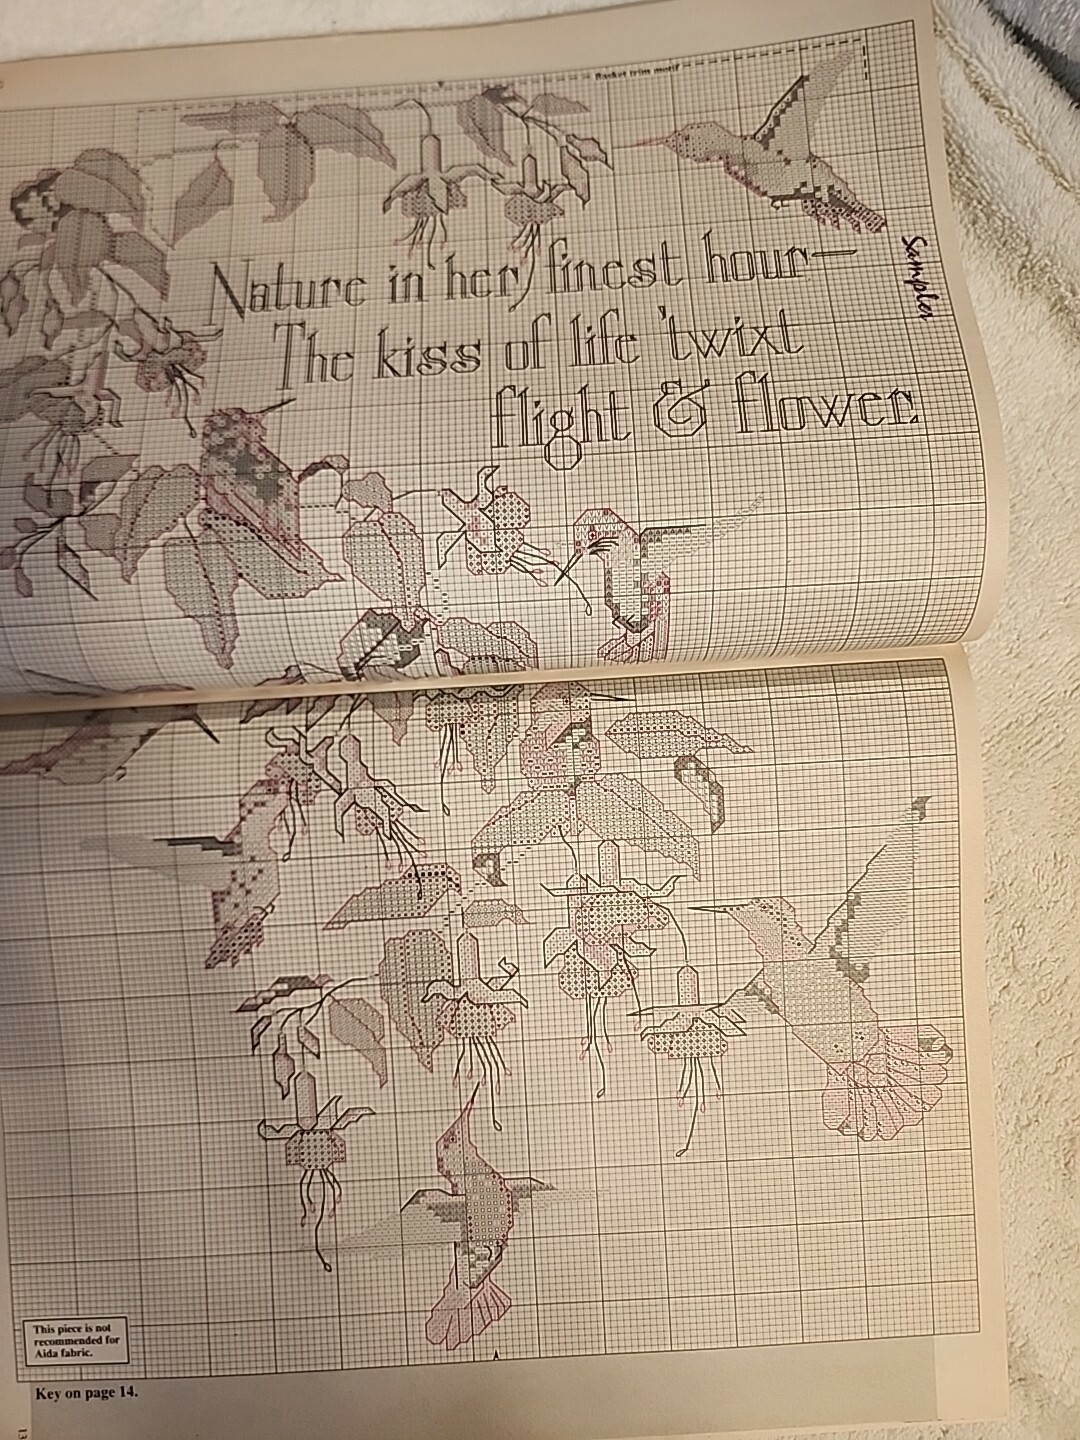 Basket trim motif
Nature in her finest hour—
The kiss of life 'twixt
flight & flower.
Sampler
This piece is not
recommended for
Aida fabric.
Key on page 14.
13